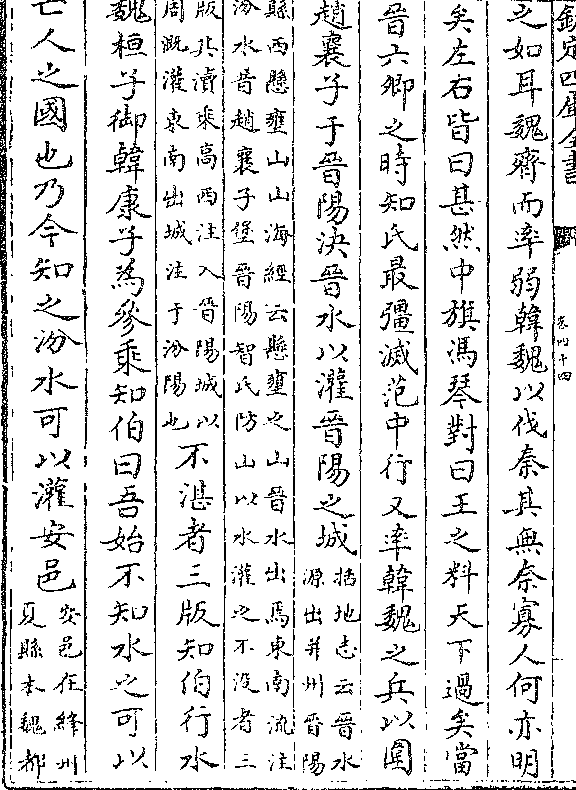 欽定四庫全書
卷四十四
之如耳魏齊而率弱韓魏以伐秦其無奈寡人何亦明
矣左右皆曰甚然中旗馮琴對曰王之料天下過矣當
晉六卿之時知氏最彊滅范中行又率韓魏之兵以圍
趙襄子于晉陽決晉水以灌晉陽之城
括地志云晉水
源出并州晉陽
縣西懸壅山山海經云懸壅之山晉水出焉東南流注
汾水昔趙襄子堡晉陽智氏防山以水灌之不没者三
版其瀆乘高西注入晉陽城以
周溉灌東南出城注于汾陽也
不湛者三版知伯行水
魏桓子御韓康子為參乘知伯曰吾始不知水之可以
亡人之國也乃今知之汾水可以灌安邑
安邑在絳州
夏縣本魏都